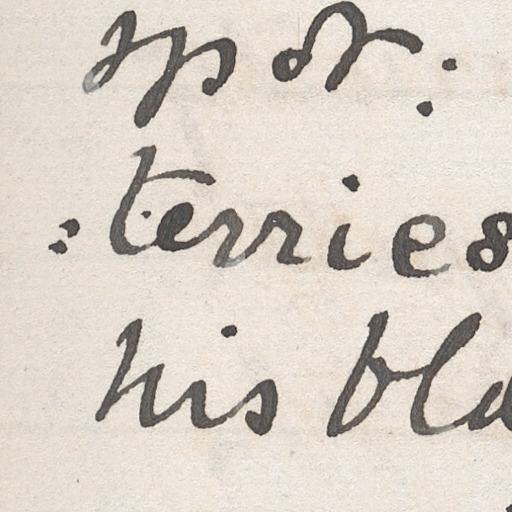 spor:
:terries
his bla